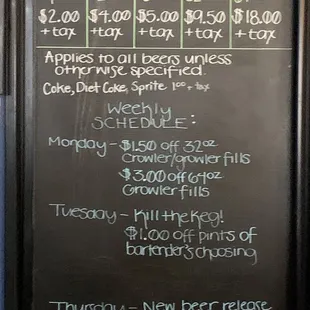 $2.00 $4.00 $5.00 $9.50 $18.00
+ tax + tax + tax + tax + tax
Applies to all beers unless
otherwise specified.
Coke, Diet Coke, Sprite 1.00 + tax
Weekly
SCHEDULE:
Monday - $1.50 off 32oz
Crowler/growler fills
$3.00 off 64oz
Growler fills
Tuesday - Kill the Keg!
$1.00 off pints of
bartender's choosing
Thursday - New beer release